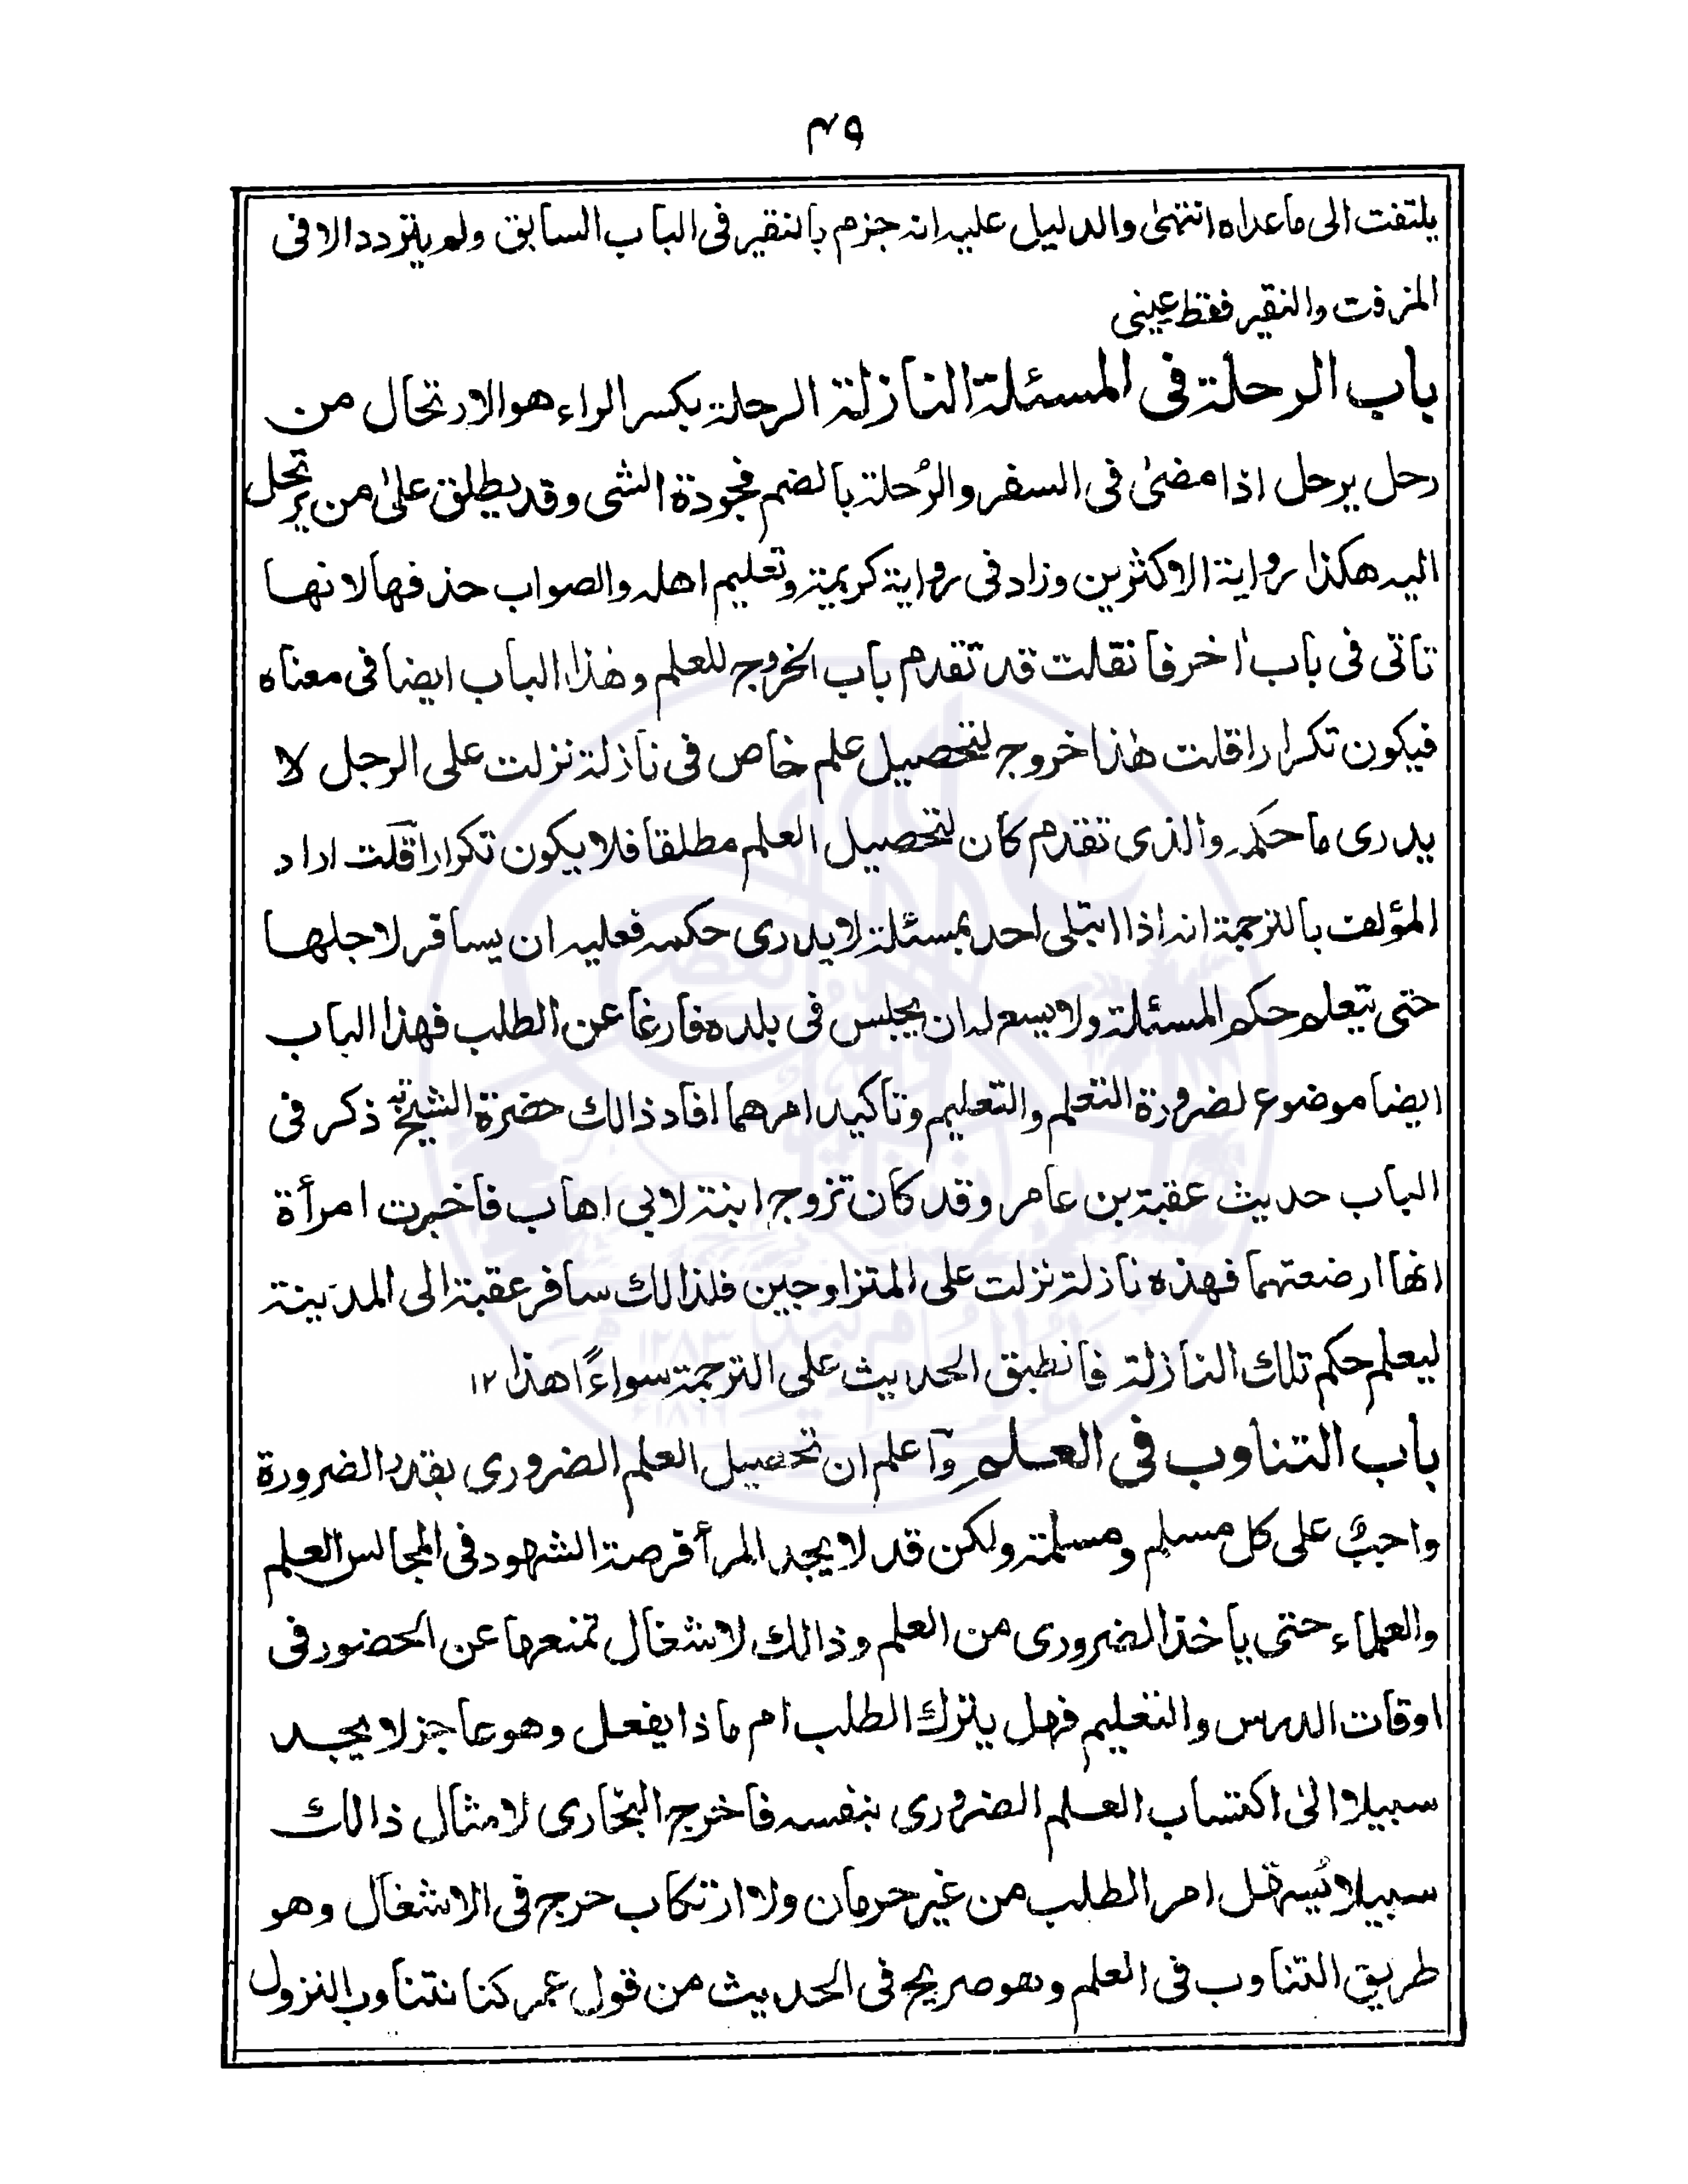 ۴۹
يلتفت الى ماعداه انتهىٰ والدليل عليه انه جزم بالنقير فى الباب السابق ولم يتردد الا فى
المزفت والنقير فقط عينى
باب الرحلة فى المسئلة النازلة الرحلة بكسر الراء هو الارتحال من
رحل يرحل اذا مضىٰ فى السفر والرُحلة بالضم فجودة الشى وقد يطلق علىٰ من يرتحل
اليه هكذا رواية الاكثرين وزاد فى رواية كريمة وتعليم اهله والصواب حذفها لانها
تاتى فى باب اٰخر فانقلت قد تقدم باب الخروج للعلم وهٰذا الباب ايضا فى معناه
فيكون تكرارا قلت هٰذا خروج لتحصيل علم خاص فى نازلة نزلت على الرجل لا
يدرى ما حكمه والذى تقدم كان لتحصيل العلم مطلقا فلا يكون تكرارا قلت اراد
المؤلف بالترجمة انه اذا ابتلى احد بمسئلة لا يدرى حكمه فعليه ان يسافر لاجلها
حتى يتعلم حكم المسئلة ولا يسع له ان يجلس فى بلده فارغا عن الطلب فهذا الباب
ايضا موضوع لضرورة التعلم والتعليم وتاكيد امرهما افاد ذالك حضرة الشيخ ذكر فى
الباب حديث عقبة بن عامر وقد كان تزوج ابنة لابى اهاب فاخبرت امرأة
انها ارضعتهما فهذه نازلة نزلت على المتزاوجين فلذالك سافر عقبة الى المدينة
ليعلم حكم تلك النازلة فانطبق الحديث على الترجمة سواءً اهذا ۱۲
باب التناوب فى العلم واعلم ان تحصيل العلم الضرورى بقدر الضرورة
واجبٌ على كل مسلم ومسلمة ولكن قد لا يجد المرأ فرصة الشهود فى المجالس العلم
والعلماء حتى ياخذ الضرورى من العلم وذالك لاشغال تمنعها عن الحضور فى
اوقات الدرس والتعليم فهل يترك الطلب ام ماذا يفعل وهو عاجز لا يجد
سبيلا الىٰ اكتساب العلم الضرورى بنفسه فاخرج البخارى لامثال ذالك
سبيلا يُسهّل امر الطلب من غير حرمان ولا ارتكاب حرج فى الاشغال وهو
طريق التناوب فى العلم وهو صريح فى الحديث من قول عمر كنا نتناوب النزول